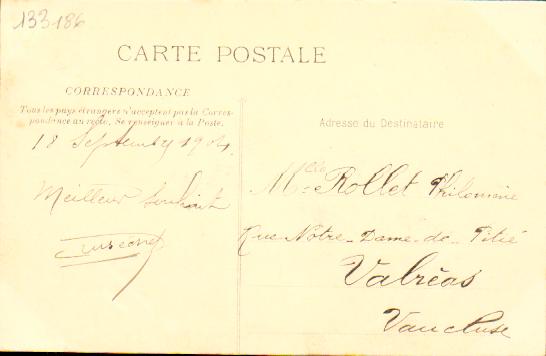 133-186
CARTE POSTALE
CORRESPONDANCE
Tous les pays étrangers n'acceptent pas la Corres-
pondance au recto. Se renseigner à la Poste.
Adresse du Destinataire
18 Septembre 1904
Meilleur Souhait
Mlle Rollet Philomène
Rue Notre-Dame-de-Pitié
Valréas
Vaucluse